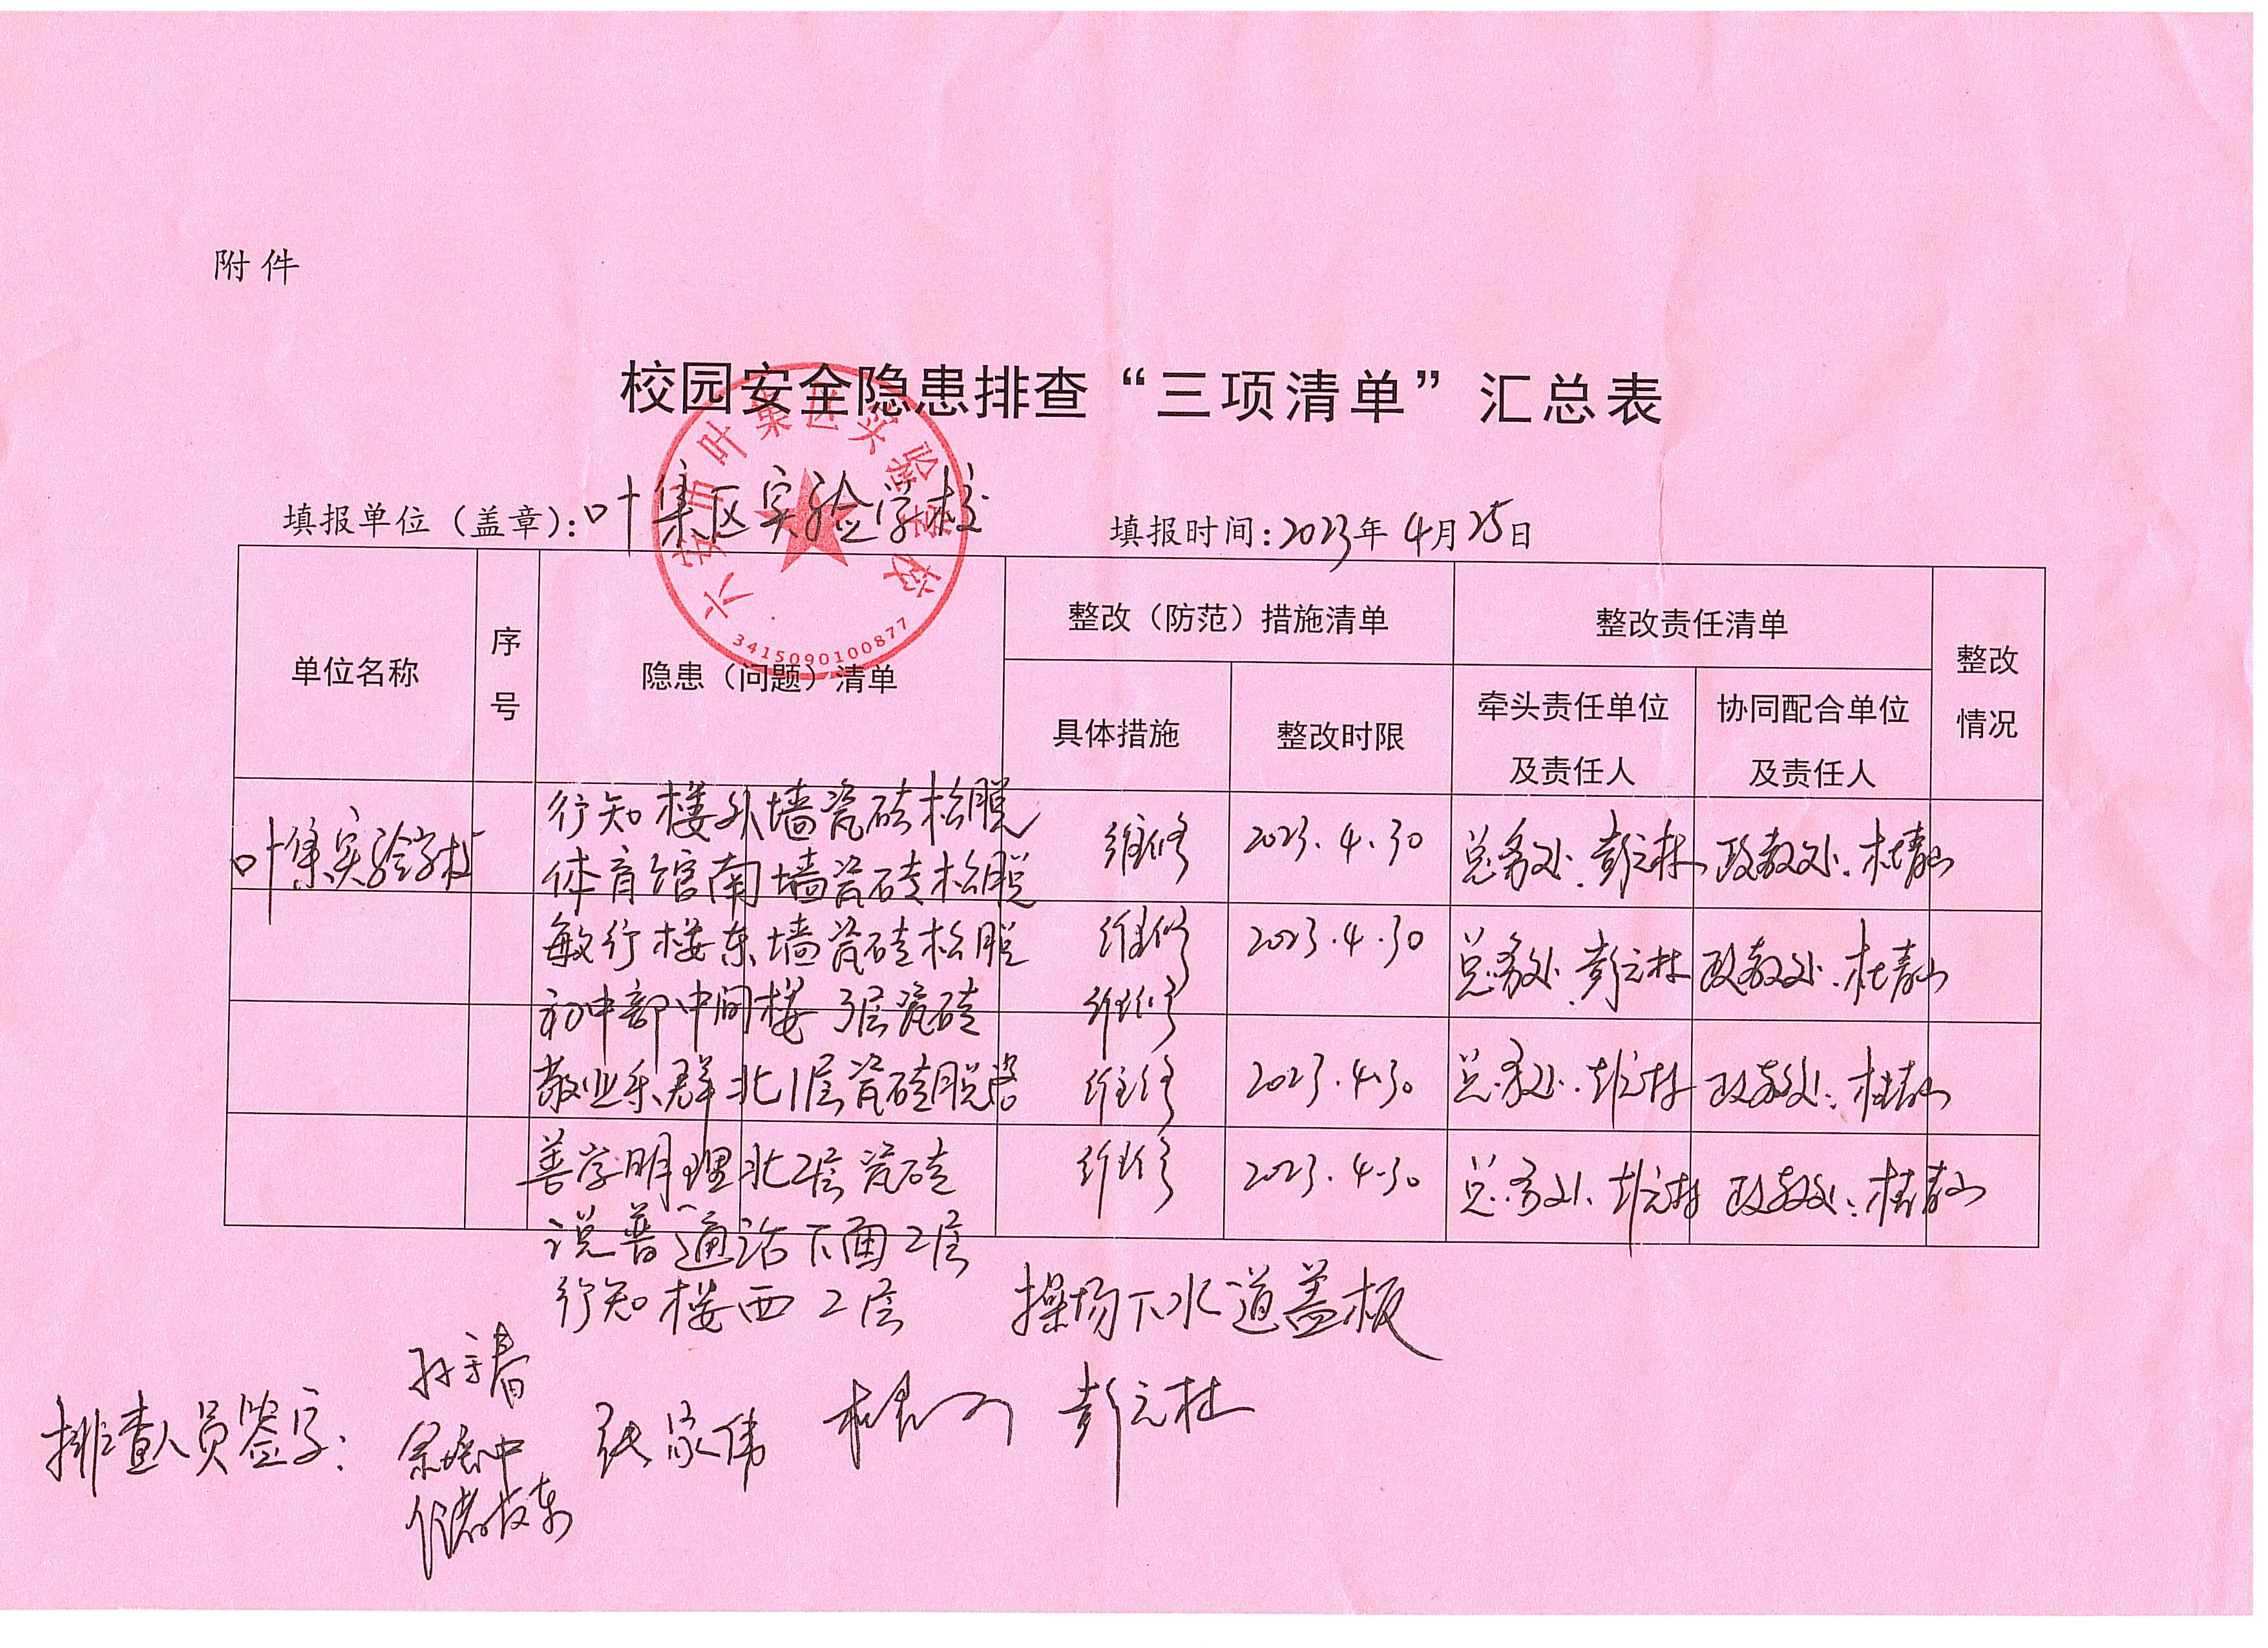 附件
校园安全隐患排查“三项清单”汇总表
填报单位（盖章）：叶集区实验学校 填报时间：2023年4月25日
六安市叶集区实验学校
3415090100877
单位名称 序号 隐患（问题）清单 整改（防范）措施清单 整改责任清单 整改情况
具体措施 整改时限 牵头责任单位及责任人 协同配合单位及责任人
叶集实验学校 行知楼外墙瓷砖松脱 维修 2023.4.30 总务处：彭元林 政教处：杜青山
体育馆南墙瓷砖松脱
敏行楼东墙瓷砖松脱 维修 2023.4.30 总务处：彭元林 政教处：杜青山
初中部中间楼 3层瓷砖 维修
敬业乐群北1层瓷砖脱落 维修 2023.4.30 总务处：彭元林 政教处：杜青山
善学明理北2层瓷砖 维修 2023.4.30 总务处：彭元林 政教处：杜青山
说普通话下面2层
行知楼西2层 操场下水道盖板
排查人员签字： 张家伟 彭元林